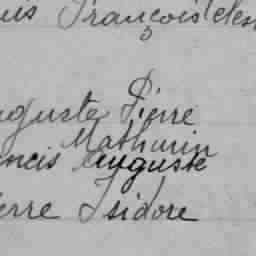 François
Auguste Pierre
Mathurin
Francis Auguste
Pierre Isidore